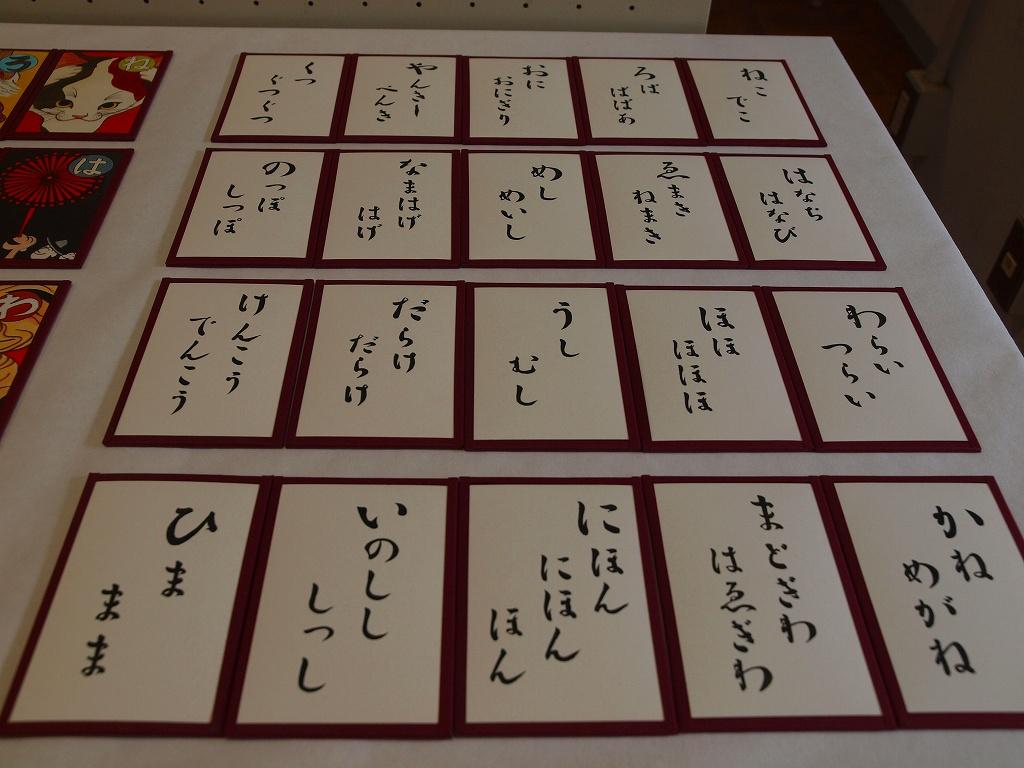 う
ね
は
わ
ねこ
でこ
ろば
ばばあ
おに
おにぎり
やんきー
べんき
くつ
ぐつぐつ
はなぢ
はなび
ゑまき
ねまき
めし
めいし
なまはげ
はげ
のっぽ
しっぽ
わらい
つらい
ほほ
ほほほ
うし
むし
だらけ
だらけ
けんこう
でんこう
かね
めがね
まどぎわ
はゑぎわ
にほん
にほん
ほん
いのしし
しっし
ひま
まま